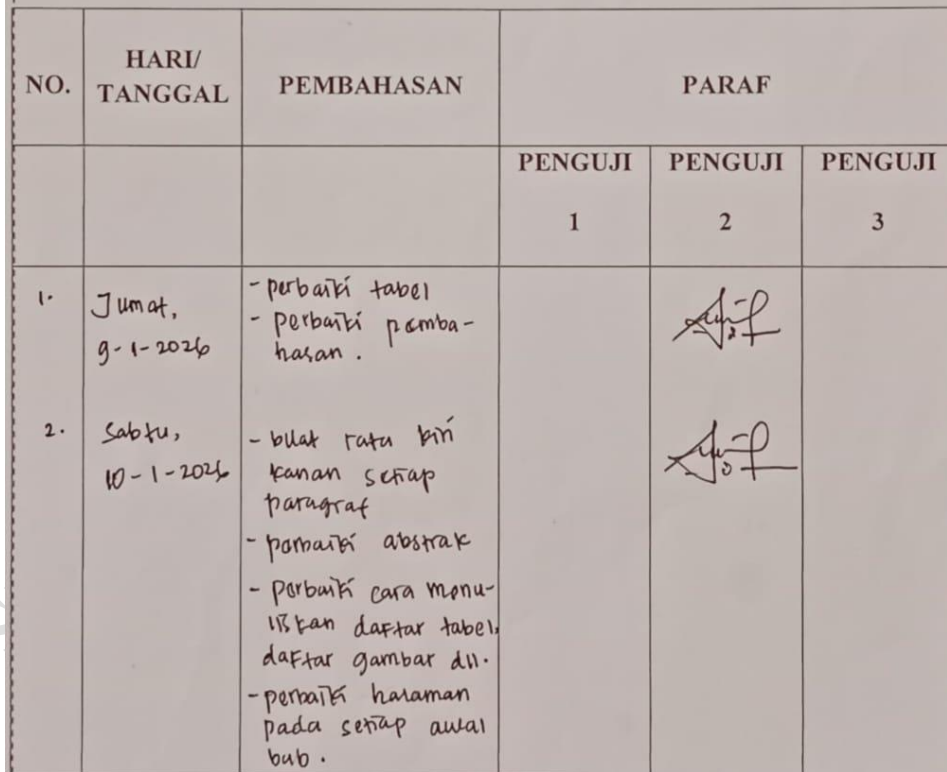 NO.
HARI/
TANGGAL
PEMBAHASAN
PARAF
PENGUJI
1
PENGUJI
2
PENGUJI
3
1.
Jumat,
9-1-2026
- perbaiki tabel
- perbaiki pemba-
hasan.
2.
Sabtu,
10-1-2026
- buat rata kiri
kanan setiap
paragraf
- perbaiki abstrak
- perbaiki cara menu-
liskan daftar tabel,
daftar gambar dll.
- perbaiki halaman
pada setiap awal
bab.